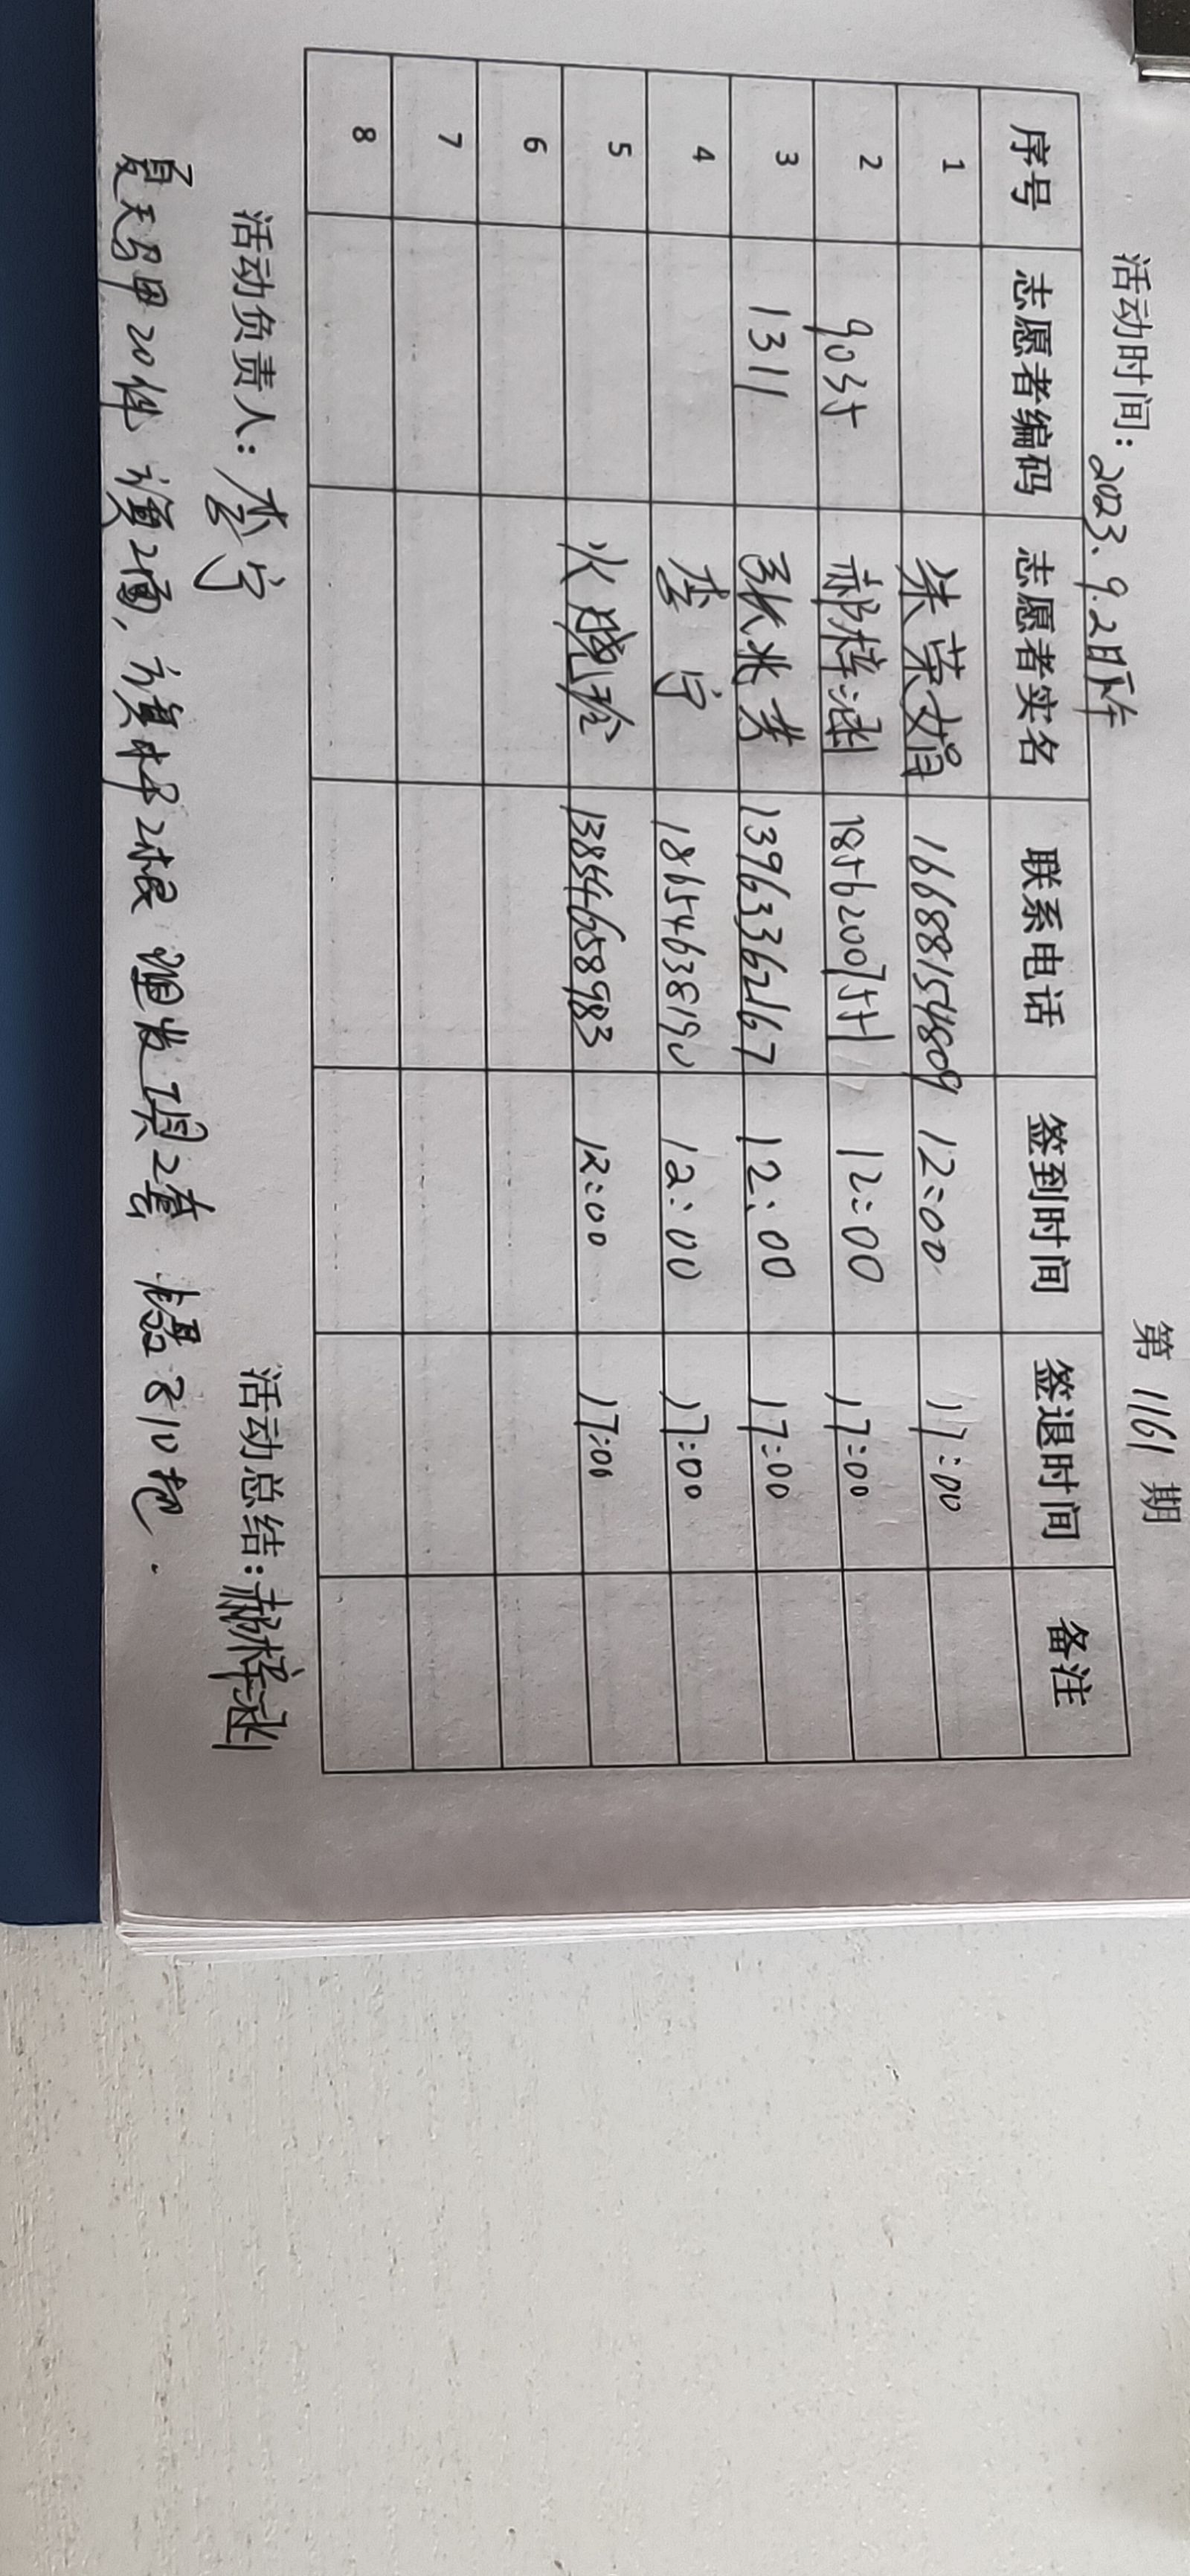 第 1161 期
活动时间：2023.9.2日下午
序号 志愿者编码 志愿者实名 联系电话 签到时间 签退时间 备注
1 朱荣娟 16688154809 12:00 17:00
2 9035 郝梓涵 18562007551 12:00 17:00
3 1311 张兆芳 13963362167 12:00 17:00
4 李宁 18654638190 12:00 17:00
5 火晓玲 13854658983 12:00 17:00
6
7
8
活动负责人：李宁 活动总结：郝梓涵
夏天马甲20件 旗2面，旗杆2根 理发工具2套 10把.